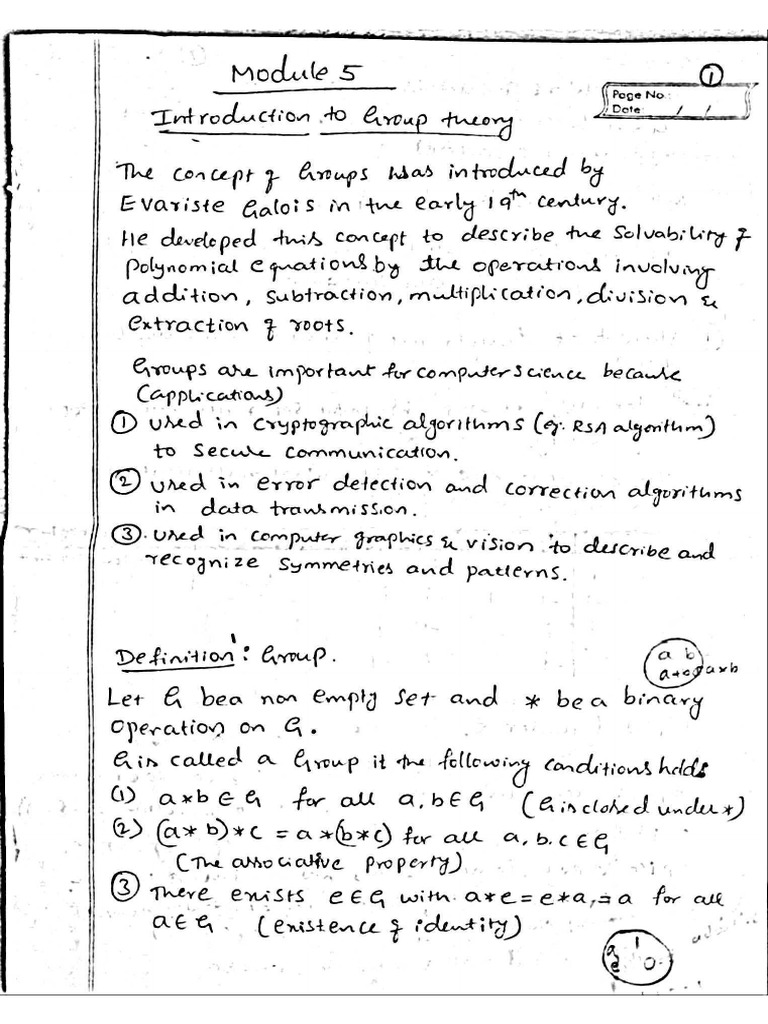 Module 5
①
Page No.:
Date: / /
Introduction to Group theory
The concept of Groups was introduced by
Evariste Galois in the early 19th century.
He developed this concept to describe the solvability of
polynomial equations by the operations involving
addition, subtraction, multiplication, division &
extraction of roots.
Groups are important for computer science because
(applications)
① used in cryptographic algorithms (eg: RSA algorithm)
to secure communication.
② used in error detection and correction algorithms
in data transmission.
③ used in computer graphics & vision to describe and
recognize symmetries and patterns.
Definition: Group.
a b
a*b
Let G be a non empty set and * be a binary
operation on G.
G is called a Group if the following conditions holds
(1) a*b ∈ G for all a, b ∈ G (G is closed under *)
(2) (a*b)*c = a*(b*c) for all a, b, c ∈ G
(The associative property)
③ There exists e ∈ G with a*e = e*a, = a for all
a ∈ G. (existence of identity)
a 1
e 0